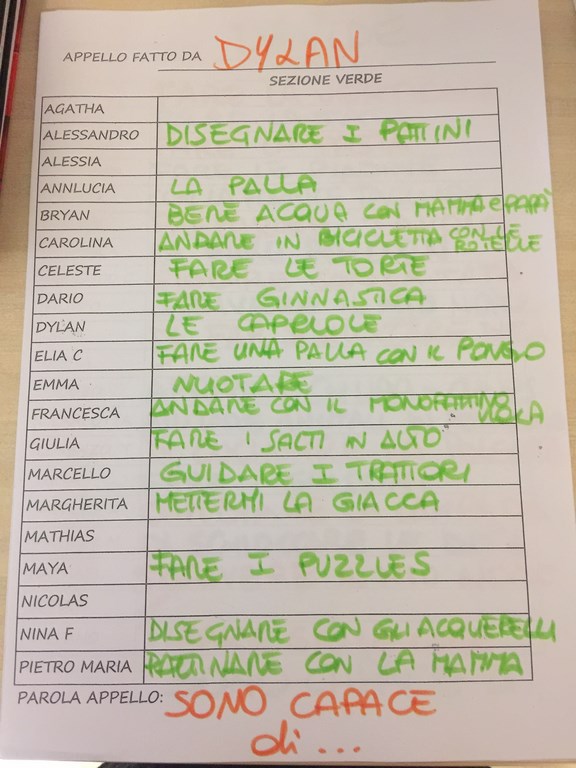 APPELLO FATTO DA DYLAN
SEZIONE VERDE
AGATHA
ALESSANDRO DISEGNARE I PATTINI
ALESSIA
ANNLUCIA LA PALLA
BRYAN BERE ACQUA CON MAMMA E PAPÀ
CAROLINA ANDARE IN BICICLETTA CON LE ROTELLE
CELESTE FARE LE TORTE
DARIO FARE GINNASTICA
DYLAN LE CAPRIOLE
ELIA C FARE UNA PALLA CON IL PONGO
EMMA NUOTARE
FRANCESCA ANDARE CON IL MONOPATTINO
GIULIA FARE I SALTI IN ALTO
MARCELLO GUIDARE I TRATTORI
MARGHERITA METTERMI LA GIACCA
MATHIAS
MAYA FARE I PUZZLES
NICOLAS
NINA F DISEGNARE CON GLI ACQUERELLI
PIETRO MARIA PATTINARE CON LA MAMMA
PAROLA APPELLO: SONO CAPACE
di...